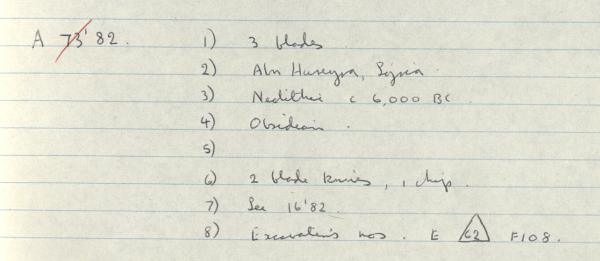 A 73'82. 1) 3 blades
2) Abu Hureyra, Syria
3) Neolithic c 6,000 BC
4) Obsidian.
5)
6) 2 blade knives, 1 chip.
7) See 16'82.
8) Excavation's nos. E 62 F108.